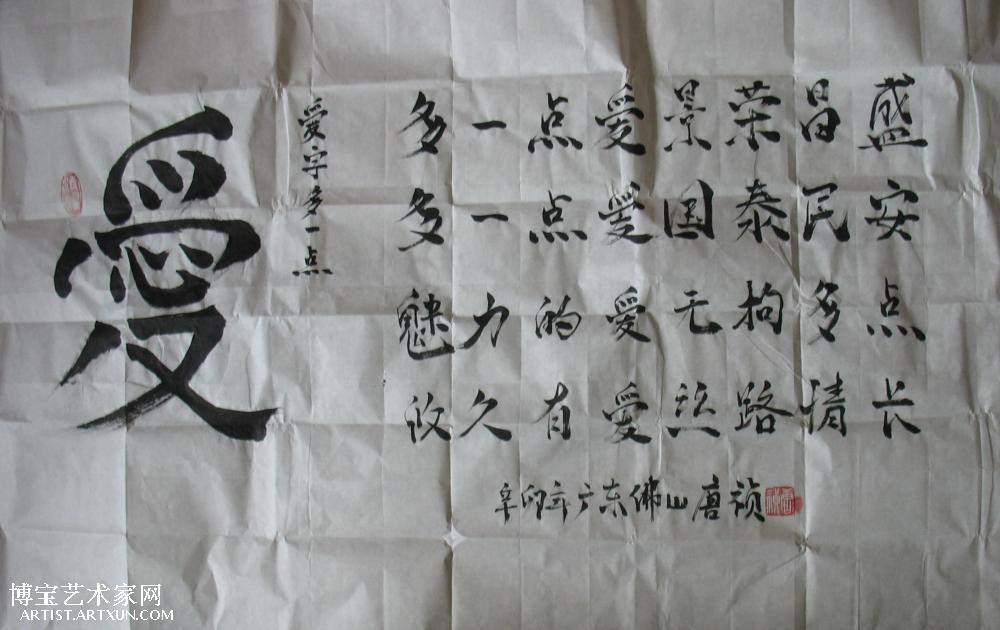 愛
爱字多一点
多一点爱景荣昌盛
多一点爱国泰民安
魅力的爱无拘多点
攸久有爱丝路情长
辛卯年广东佛山唐祯
博宝艺术家网
ARTIST.ARTXUN.COM